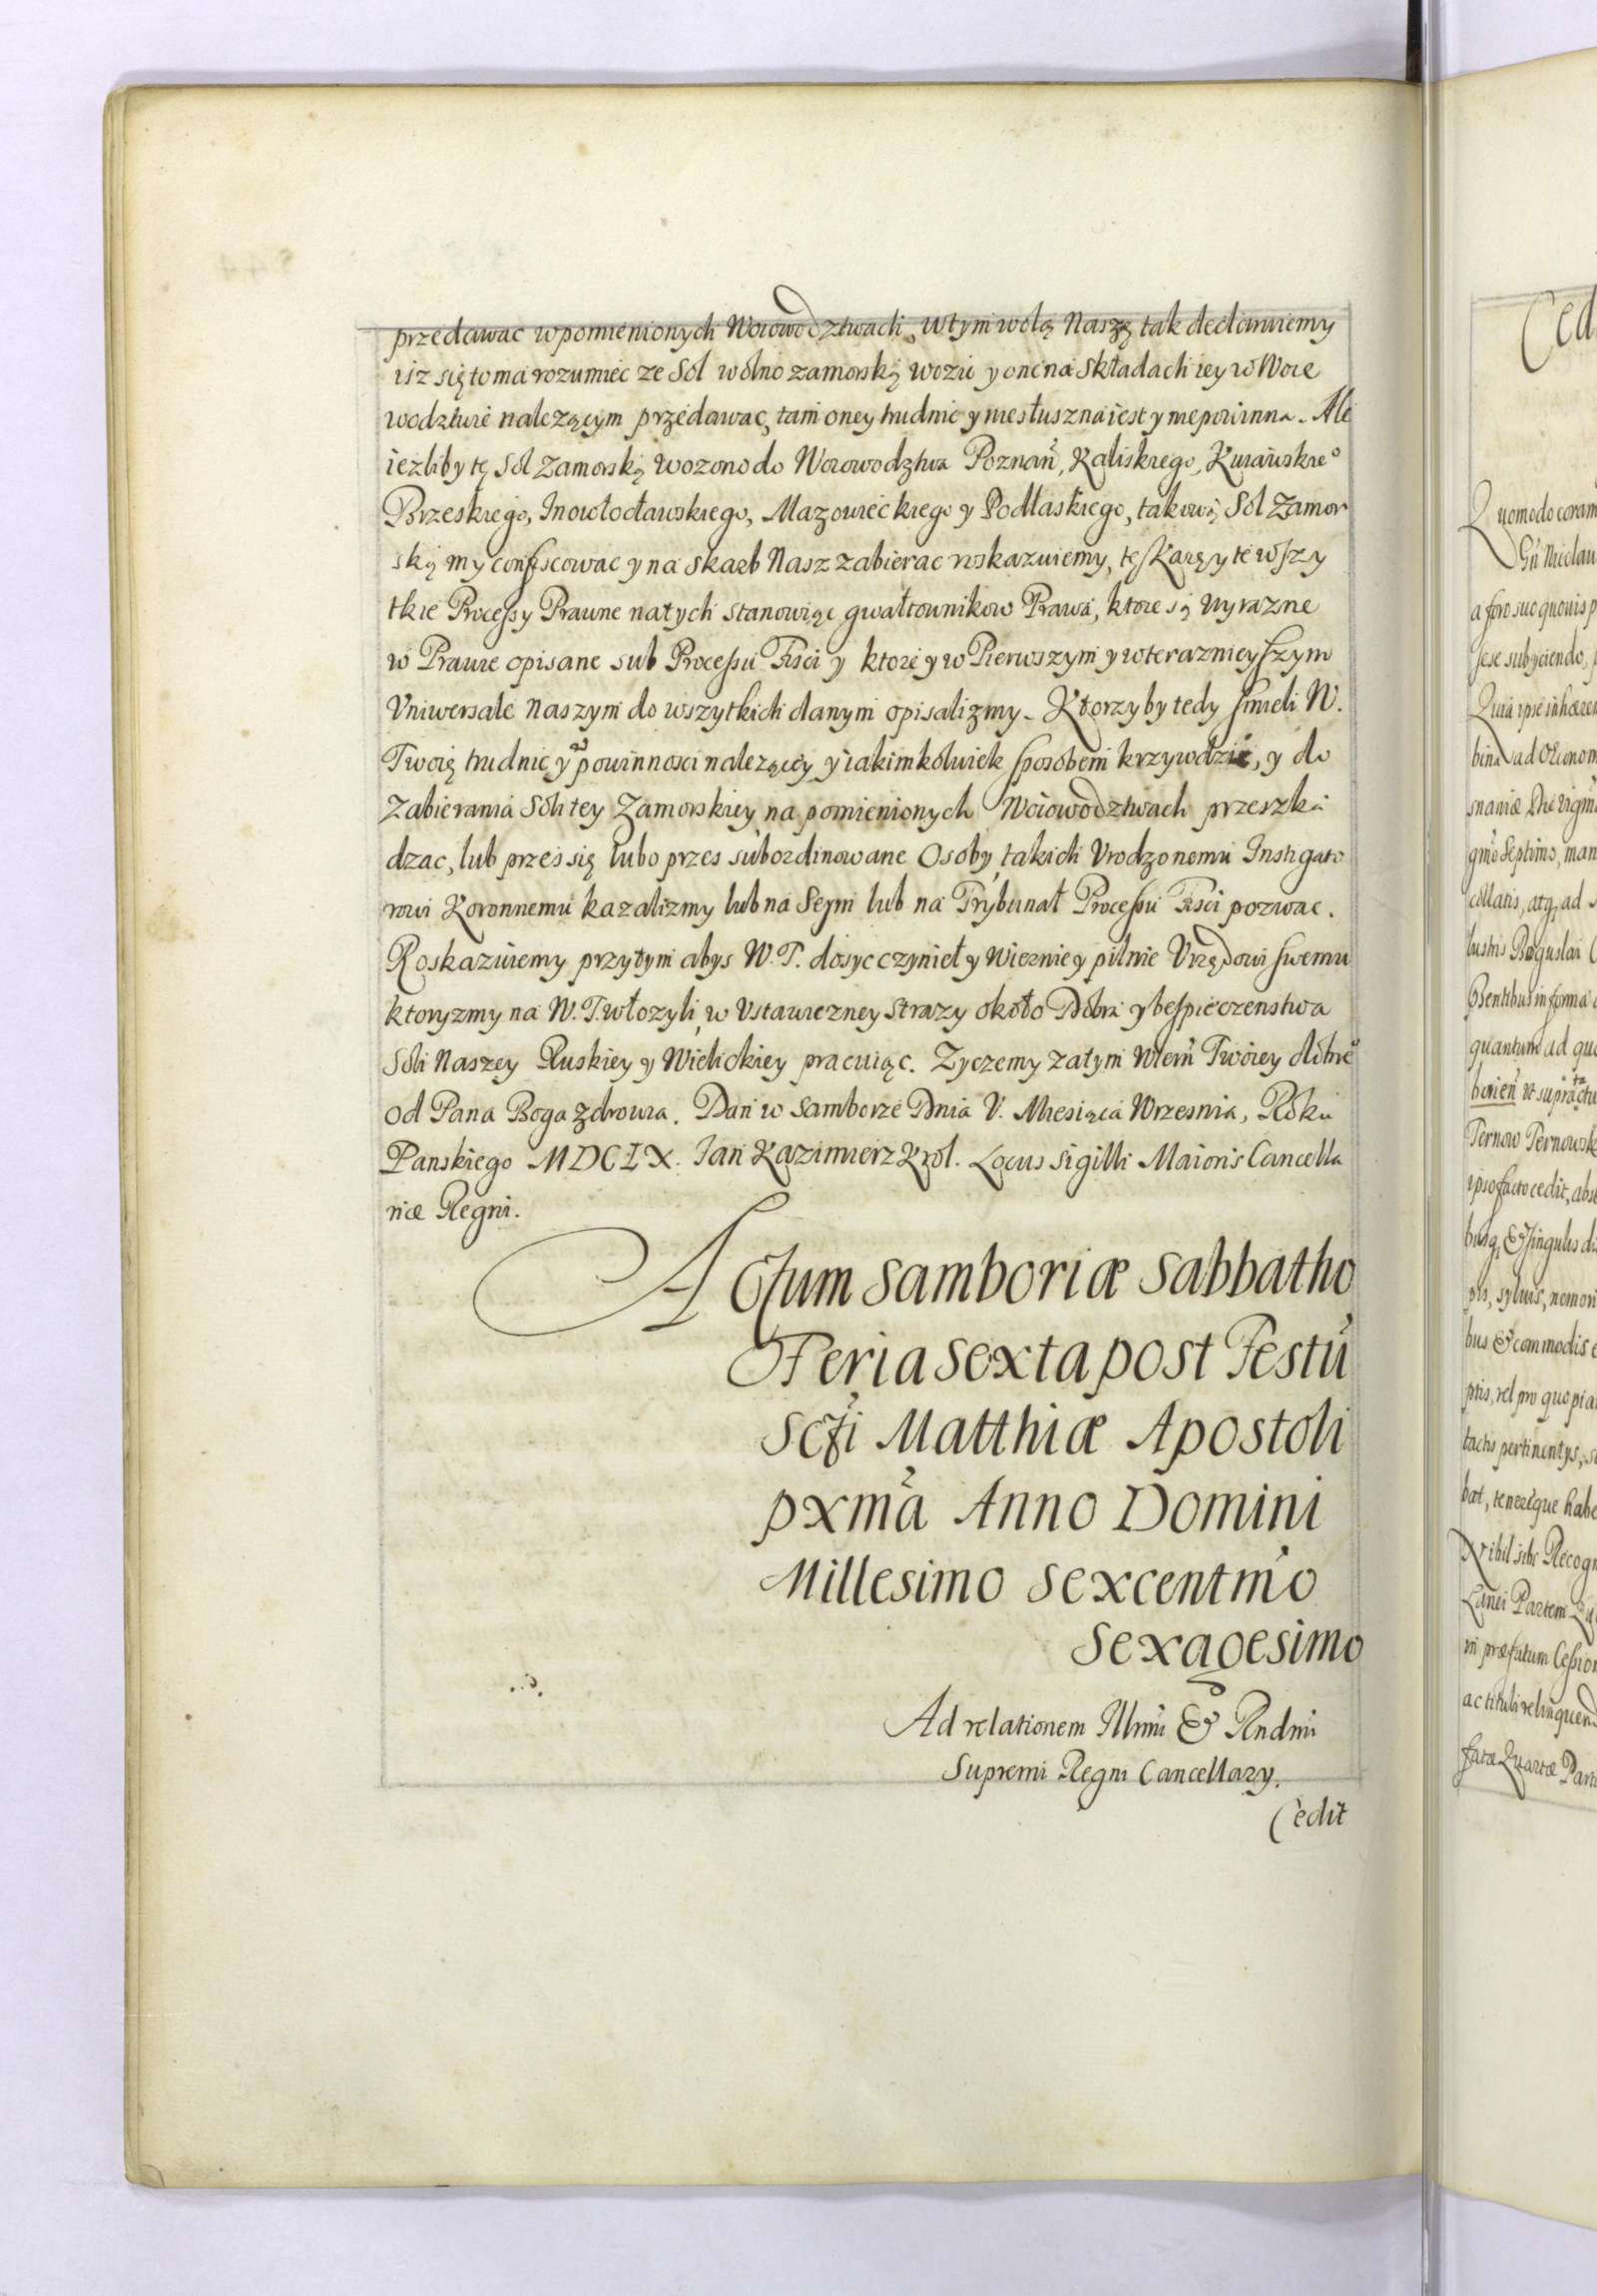 przedawac w pomienionych Woiowodztwach, w tym wolą Naszę tak declaruiemy
isz się to ma rozumiec ze Sol wolno zamorską wozic y one na Składach iey w Woie
wodztwie nalezącym przedawac, tam oney trudnic y niesłuszna iest y niepowinna. Ale
iezliby tę Sol Zamorską wozono do Woiowodztwa Poznań, Kaliskiego, Kuiawskieo
Brzeskiego, Inowłocławskiego, Mazowieckiego y Podlaskiego, takową Sol Zamor
ską my confiscowac y na Skarb Nasz zabierac roskazuiemy, tęs Karę y te wszy
tkie Processy Prawne na tych stanowiąc gwałtownikow Prawa, ktore są wyrazne
w Prawie opisane sub Processu Fisci y ktore y w Pierwszym y w teraznieyszym
Vniwersale Naszym do wszytkich danym opisalizmy. Ktorzy by tedy smieli W.
Twoię trudnic y powinnosci nalezącey y iakimkolwiek sposobem krzywdzic, y do
Zabierania Soli tey Zamorskiey na pomienionych Woiowodztwach przeszka
dzac, lub przes się lubo przes subordinowane Osoby, takich Vrodzonemu Instigato
rowi Koronnemu kazalizmy lub na Seym lub na Trybunał Processu Fisci pozwac.
Roskazuiemy przytym abys W. T. dosyc czynieł y Wiernie y pilnie Vrzędowi swemu
ktoryzmy na W. T. włozyli, w Vstawiczney Strazy około Dobra y bespieczenstwa
Soli Naszey Ruskiey y Wielickiey pracuiąc. Zyczemy zatym Wiern Twoiey dobre
od Pana Boga zdrowia. Dan w Samborze Dnia V. Miesiąca Wrzesnia, Roku
Panskiego MDCLX. Jan Kazimierz Krol. Locus Sigilli Maioris Cancella
riæ Regni.
Actum Samboriæ Sabbatho
Feria Sexta post Festũ
Scti Matthiæ Apostoli
pxma Anno Domini
Millesimo Sexcentmo
Sexagesimo
Ad relationem Illmi & Rndmi
Supremi Regni Cancellary.
Cedit
Ced
Quomodo coram
Gń Nicolau
a foro suo quovis p
sese subyciendo,
Quia ipse inhære
bina ad Oeconom
snaniæ Die Vigm
gmo Septimo, man
collatis, atq ad
lustris Boguslai
Bsentibus in forma
quantum ad qu
bonień ut supra
Ternow Ternowsk
ipso facto cedit, abs
busq, & Singulis di
pis, sylvis, nemori
bus & commodis
ptis, vel pro quopia
tactis pertinentys, s
bat, tenereque habe
Nihil sibi Recog
Lanei Partem Qu
in præfatum Cession
ac tituli relinquend
fatæ Quartæ Part